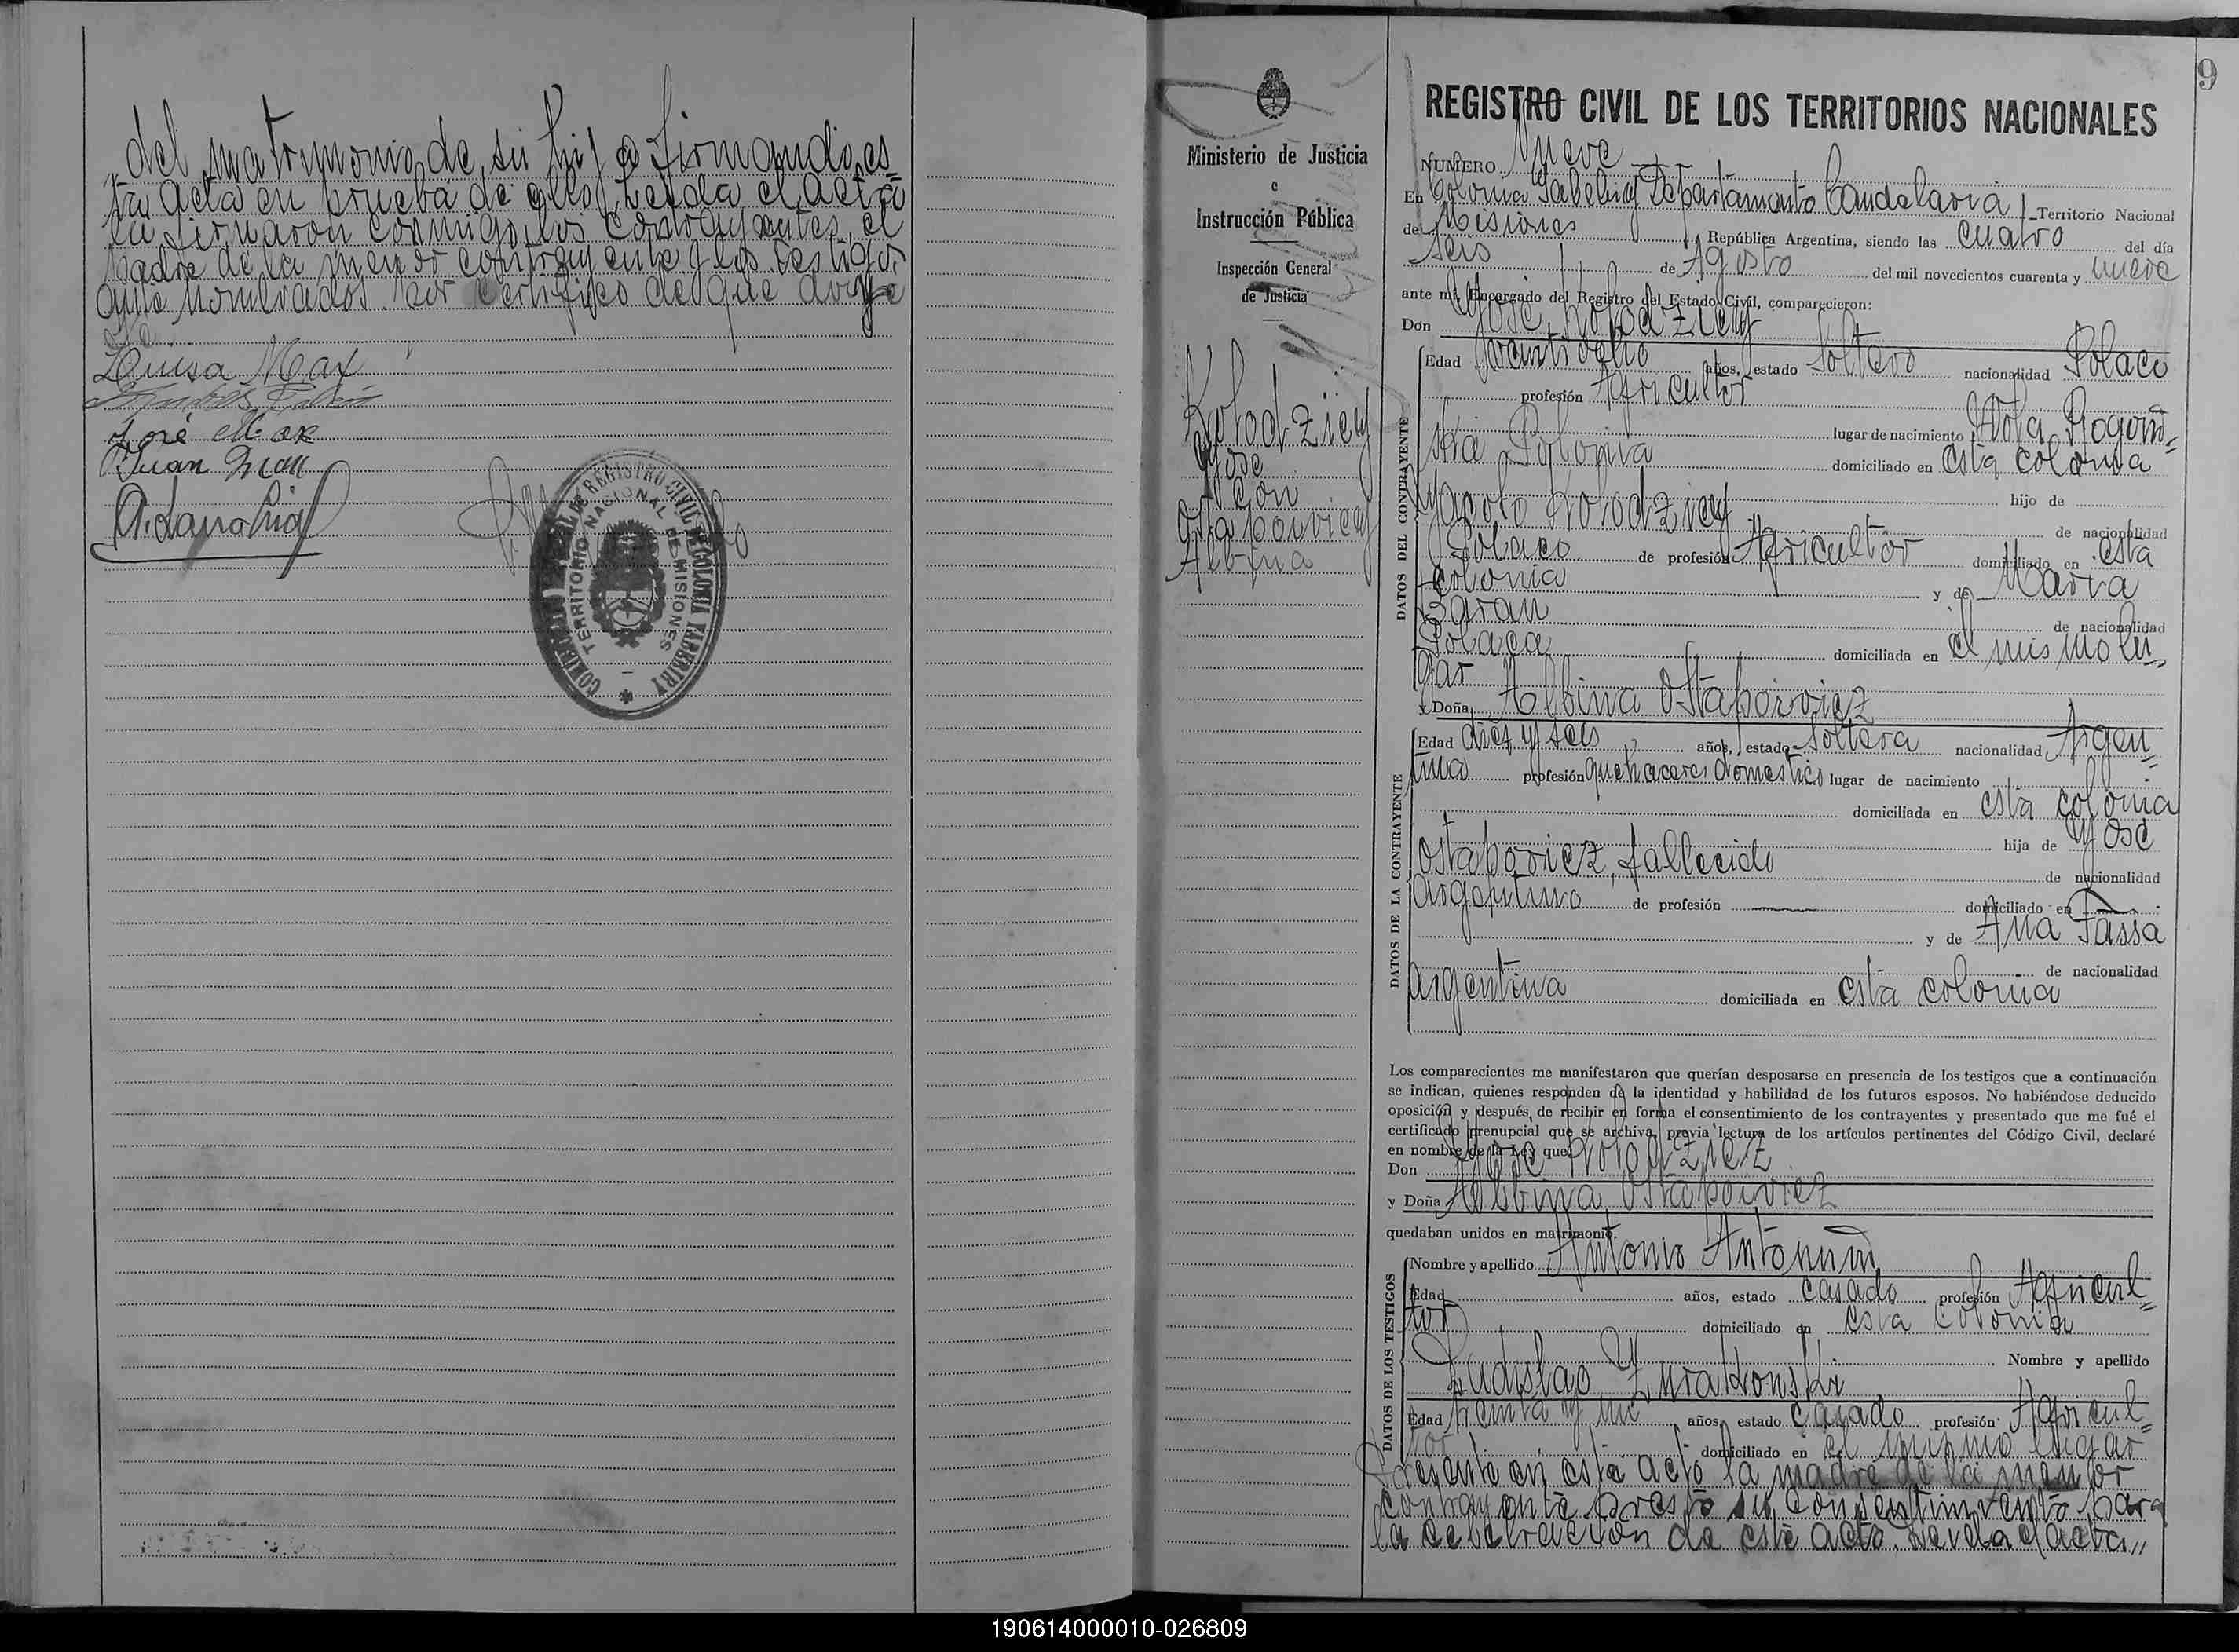 del matrimonio de su hija firmando es
ta acta en prueba de ello, Leida el acta
la firmaron conmigo, los contrayentes, el
padre de la menor contrayente y los testigos
que nombrados por certifico de que doy fe
Luisa Max
José Max
Juan
REGISTRO CIVIL DE COLONIA YABEBIRY
TERRITORIO NACIONAL DE MISIONES
9
Ministerio de Justicia
e
Instrucción Pública
Inspección General
de Justicia
Kolodziey
José
con
Ostapowicz
Albina
REGISTRO CIVIL DE LOS TERRITORIOS NACIONALES
NUMERO Nueve
En Colonia Yabebiry Departamento Candelaria, Territorio Nacional
de Misiones, República Argentina, siendo las cuatro del día
seis de Agosto del mil novecientos cuarenta y nueve
ante mí, Encargado del Registro del Estado Civil, comparecieron:
Don José Kolodziey
Edad veintiocho años, estado Soltero nacionalidad Polaco
profesión Agricultor
lugar de nacimiento Wola Rogowi=
ska Polonia domiciliado en esta colonia
hijo de
Kolodziey de nacionalidad
Polaco de profesión Agricultor domiciliado en esta
colonia y de María
Baran de nacionalidad
Polaca domiciliada en el mismo lu=
gar
y Doña Albina Ostapowicz
Edad diez y seis años, estado Soltera nacionalidad Argen=
tina profesión quehaceres domesticos lugar de nacimiento
domiciliada en esta colonia
hija de José
Ostapowicz, fallecido de nacionalidad
argentino de profesión — domiciliado en —
y de Ana Tassa
de nacionalidad
argentina domiciliada en esta colonia
Los comparecientes me manifestaron que querían desposarse en presencia de los testigos que a continuación
se indican, quienes responden de la identidad y habilidad de los futuros esposos. No habiéndose deducido
oposición y después de recibir en forma el consentimiento de los contrayentes y presentado que me fué el
certificado prenupcial que se archiva, previa lectura de los artículos pertinentes del Código Civil, declaré
en nombre de la Ley que
Don José Kolodziez
y Doña Albina Ostapowicz
quedaban unidos en matrimonio.
Nombre y apellido Antonio
Edad años, estado casado profesión Agricul=
tor domiciliado en esta Colonia
Nombre y apellido
Ladislao Zurakowski
Edad treinta y un años, estado casado profesión Agricul=
tor domiciliado en el mismo lugar
Presente en este acto la madre de la menor
contrayente presto su consentimiento para
la celebración de este acto. Leida el acta,,
DATOS DEL CONTRAYENTE
DATOS DE LA CONTRAYENTE
DATOS DE LOS TESTIGOS
190614000010-026809